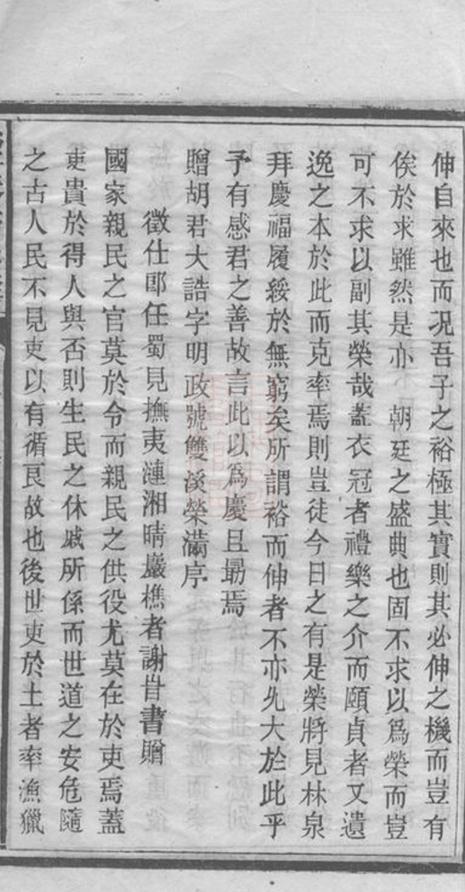 伸自來也而況吾子之裕極其實則其必伸之機而豈有
俟於求雖然是亦　朝廷之盛典也固不求以爲榮而豈
可不求以副其榮哉蓋衣冠者禮樂之介而頤貞者又遺
逸之本於此而克率焉則豈徒今日之有是榮將見林泉
拜慶福履綏於無窮矣所謂裕而伸者不亦尤大於此乎
予有感君之善故言此以爲慶且勗焉
贈胡君大誥字明政號雙溪榮滿序
徵仕郎任蜀見撫夷漣湘晴巖樵者謝昔書贈
國家親民之官莫於令而親民之供役尤莫在於吏焉蓋
吏貴於得人與否則生民之休戚所係而世道之安危隨
之古人民不見吏以有循良故也後世吏於土者率漁獵